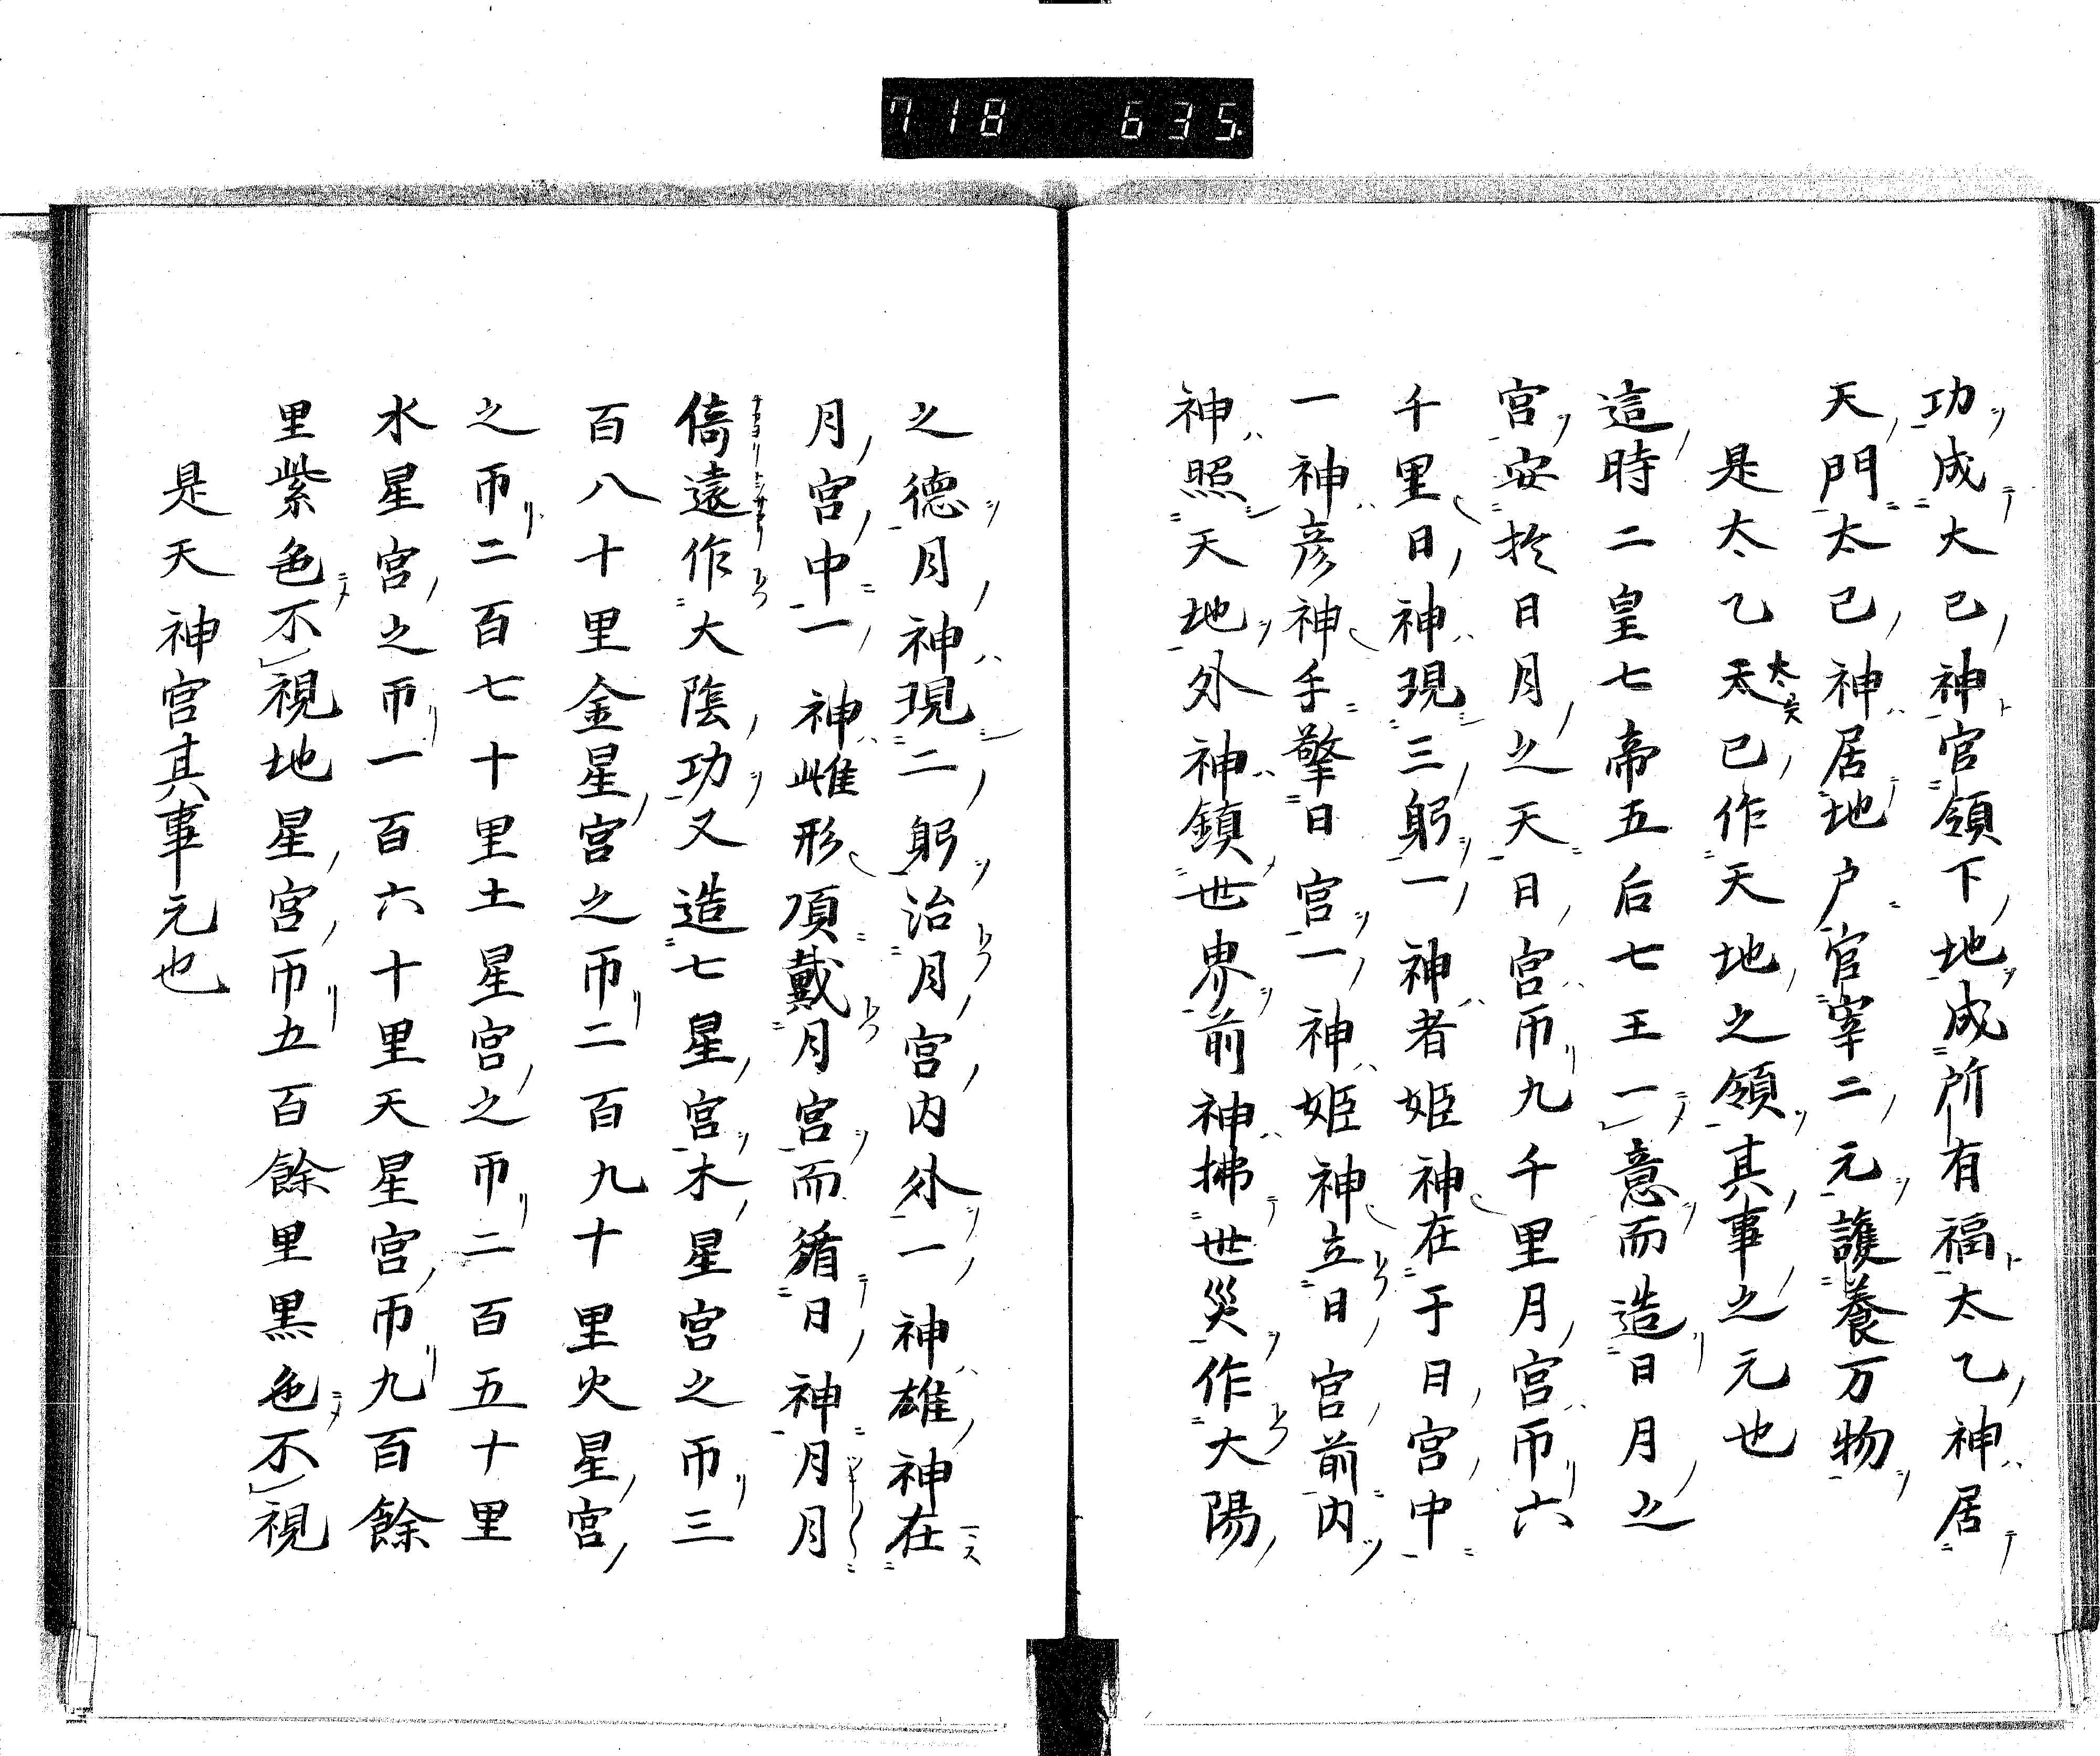 718 635.
功成大己神官領下地成所有福太乙神居
天門太己神居地户官宰二元護養万物
是太乙天已作天地之領其事之元也
這時二皇七帝五后七王一意而造日月之
宮安於日月之天日宮帀九千里月宮帀六
千里日神現三躬一神者姫神在于日宮中
一神彦神手擎日宮一神姫神立日宮前内
神照天地外神鎮世界前神拂世災作大陽
之徳月神現二躬治月宮内外一神雄神在
月宮中一神雌形頂戴月宮而循日神月月
倚遠作大陰功又造七星宮木星宮之帀三
百八十里金星宮之帀二百九十里火星宮
之帀二百七十里土星宮之帀二百五十里
水星宮之帀一百六十里天星宮帀九百餘
里紫色不視地星宮帀五百餘里黒色不視
是天神宮其事元也